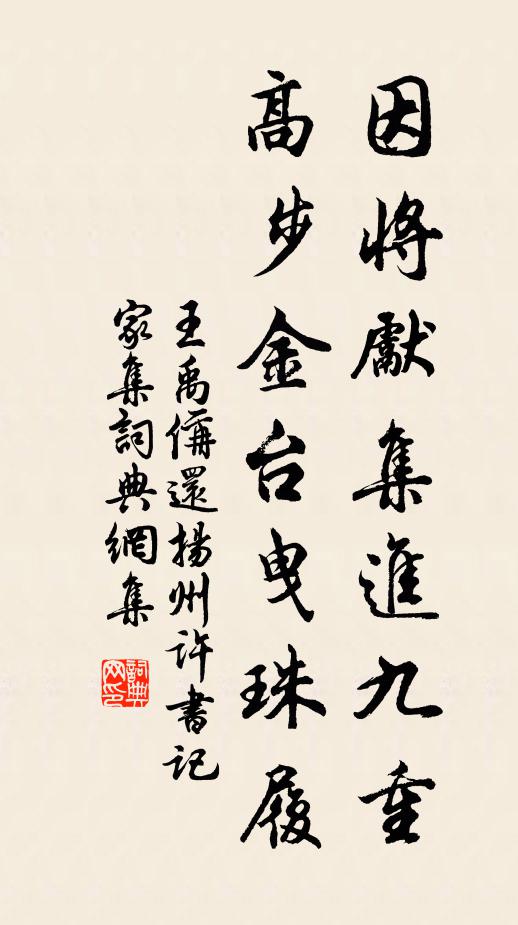 因將獻集進九重
高步金台曳珠履
王禹偁還揚州許書記
家集詞典網集
詞典网印